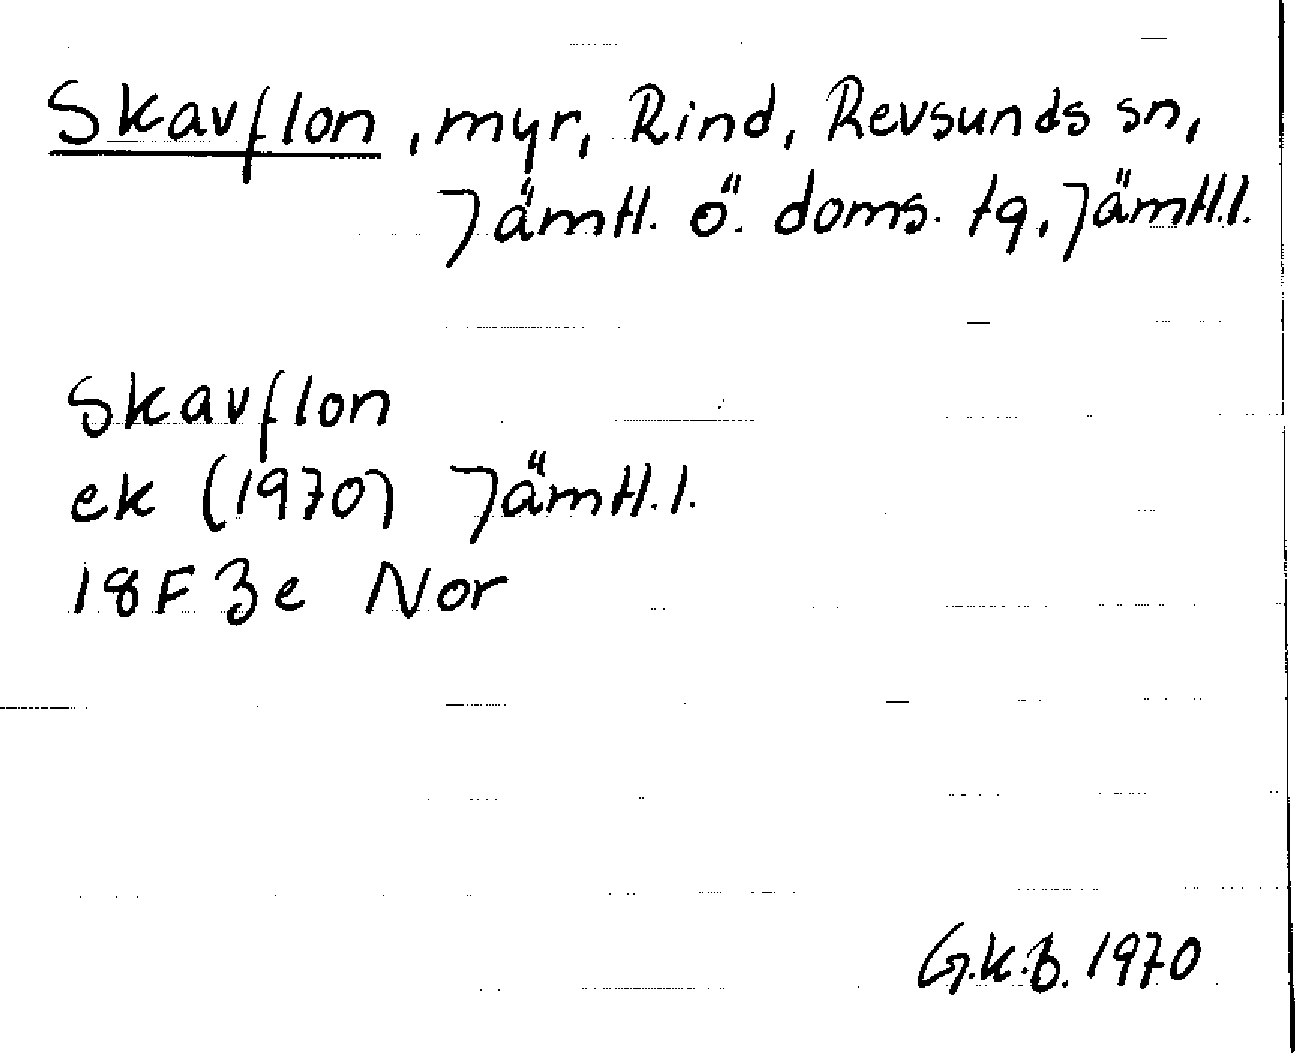 Skavflon, myr, Rind, Revsunds sn,
Jämtl. ö. doms. tg, Jämtl.l.
Skavflon
ek (1970) Jämtl.l.
18F 3e Nor
G.K.B. 1970